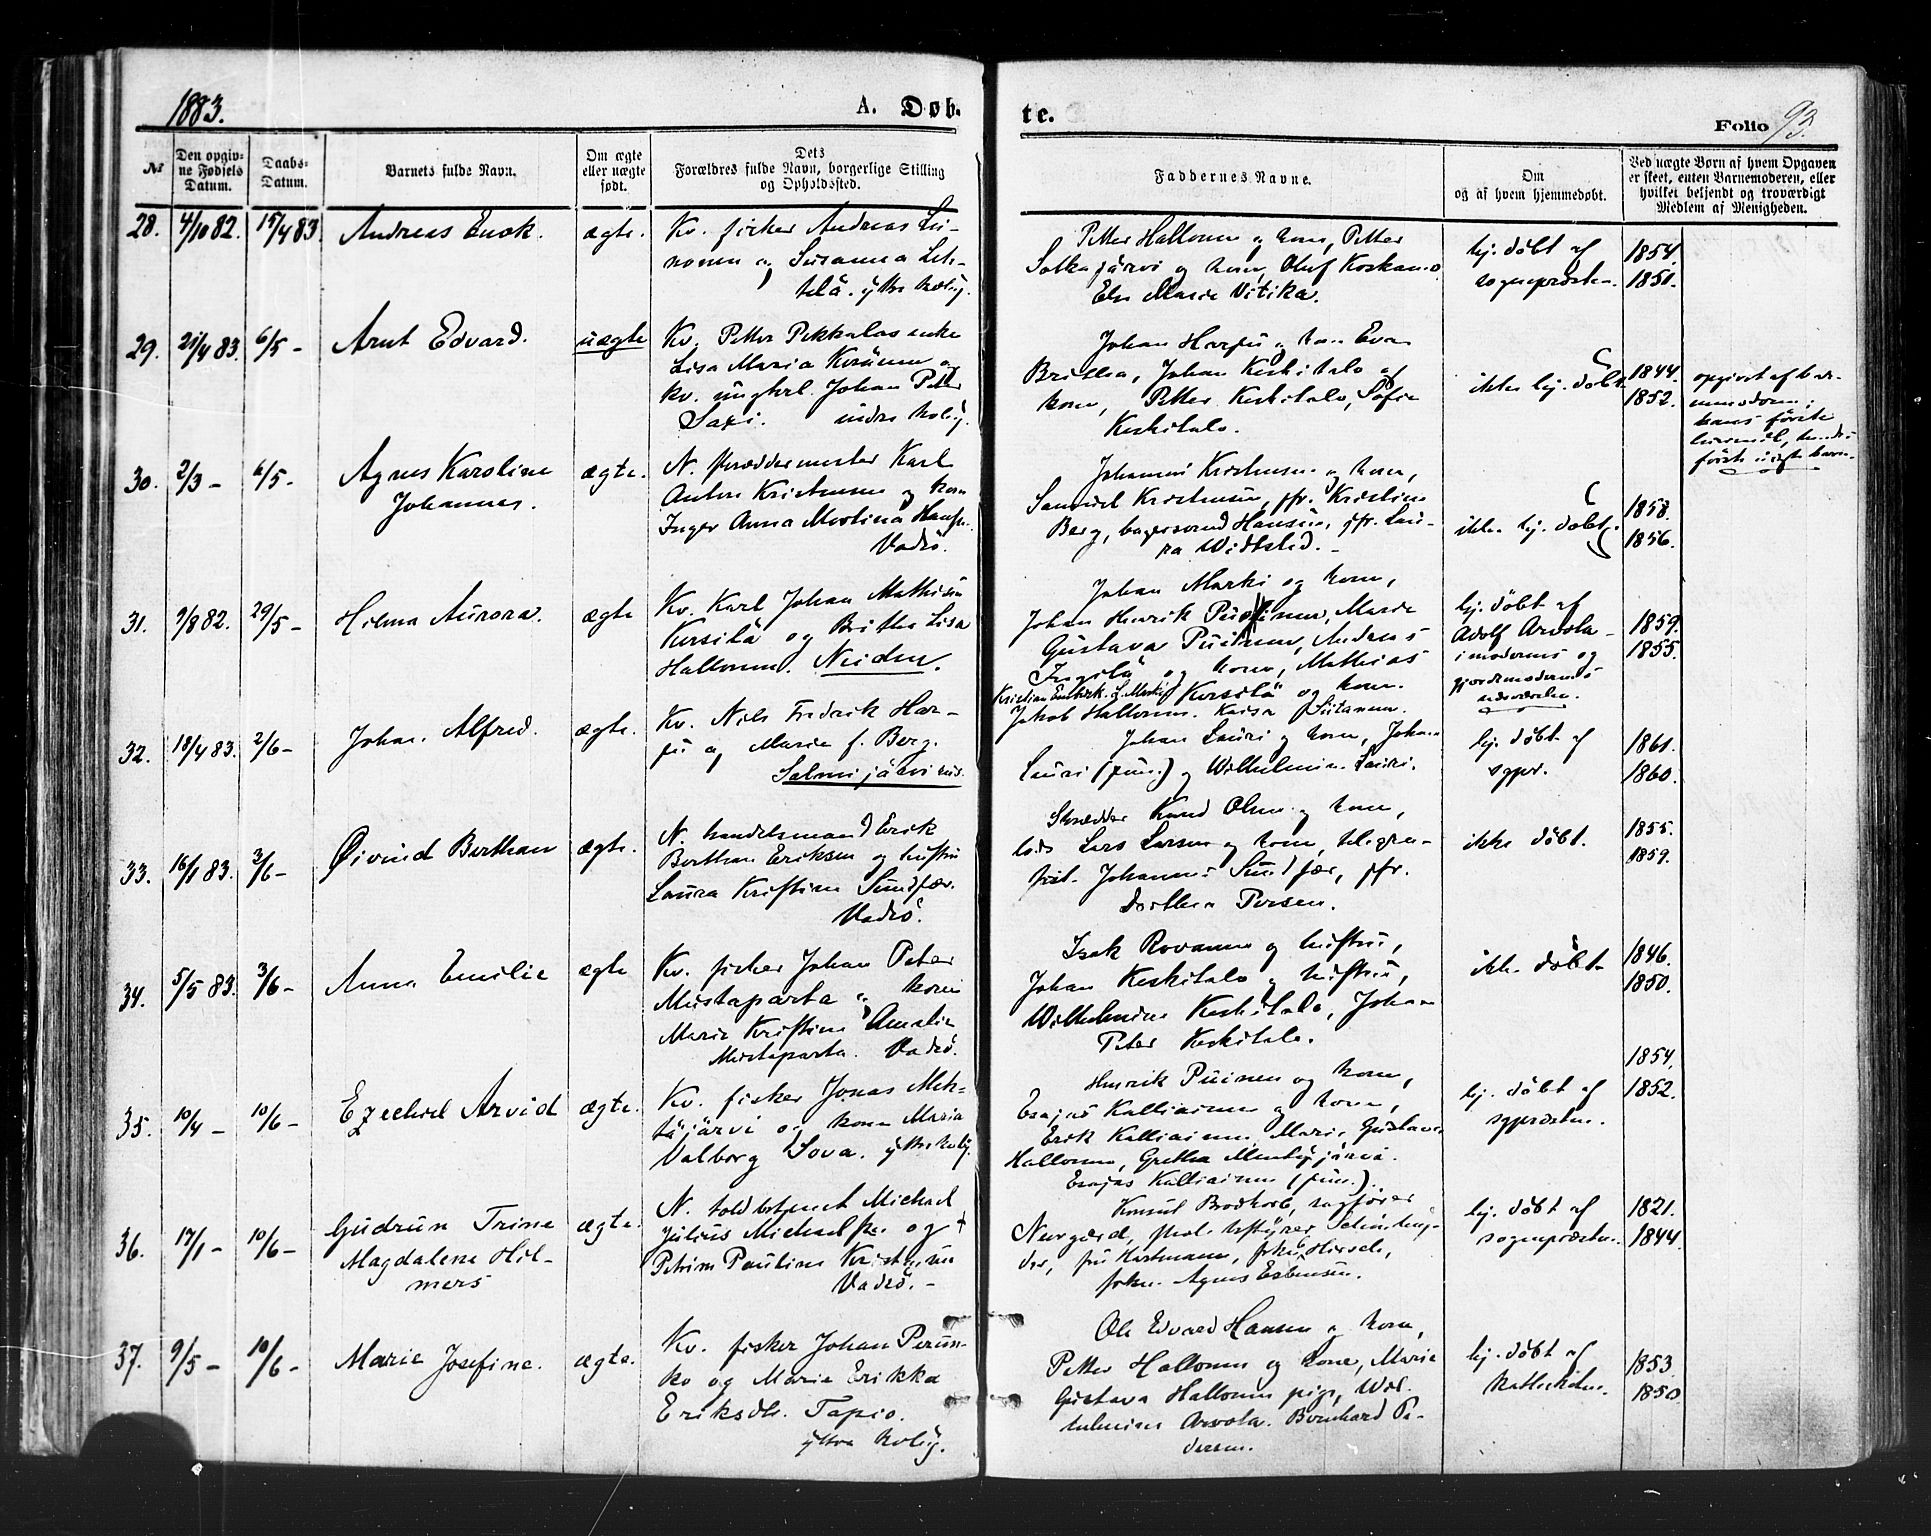 1883.
A. Døb-
te.
Folio 93.
№
Den opgiv-
ne Fødsels
Datum.
Daabs-
Datum.
Barnets fulde Navn.
Om ægte
eller uægte
født.
Dets
Forældres fulde Navn, borgerlige Stilling
og Opholdssted.
Faddernes Navne.
Om
og af hvem hjemmedøbt.
Ved uægte Børn af hvem Opgaven
er skeet, enten Barnemoderen, eller
hvilket bekjendt og troværdigt
Medlem af Menigheden.
28. 4/10 82. 15/4 83. Andreas Enok. ægte.
Kv. fisker Andreas
og Susanna Leh-
telä.
Petter Hallonen og kone, Petter
Salkajärvi og kone, Oluf
Else Marie Vitika.
hj. døbt af
sognepræsten.
1854.
1851.
29. 21/4 83. 6/5 - Arnt Edvard. uægte
Kv. Petter Pekkalas enke
Lisa Maria og
kv. ungkrl. Johan Peter
Saxi. indre kolig.
Johan Harju og kone Eva
Britha, Johan Keskitalo og
kone, Petter Keskitalo, Sofie
Keskitalo.
ikke hj. døbt
1844.
1852.
opgivet af bar-
nemoderen;
hans første
leiermål, hendes
første uægte barn.
30. 2/3 - 6/5 - Agnes Karoline
Johannes.
ægte.
N. skræddermester Karl
Anton Kristensen og kone
Inger Anna Martina
Vadsö.
Johannes Kristensen og kone,
Samuel Kristensen, jfr. Kristine
Berg, bagersvend Hansen, jfr. Lau-
ra Widtsted. -
ikke hj. døbt.
1858.
1856.
31. 9/8 82. 29/5 - Hilma Aurora. ægte
Kv. Karl Johan Mathisen
Kersilä og Britha Lisa
Hallonen. Neiden.
Johan Marki og kone,
Johan Henrik Puikinen, Marie
Gustava Puikinen, Anders
Ingilä og kone, Mathias
Kersilä og kone.
Jakob Hallonen. Kaisa
hj. døbt af
Adolf Arvola
i moderens og
gjordemoderens
nærværelse.
1859.
1855.
32. 18/4 83. 2/6 - Johan Alfred. ægte.
Kv. Nils Fredrik Har-
ju og Marie f. Berg.
Salmijärvi
Johan Lauri og kone, Johan
Lauri (jun.) og Wilhelmine Lauri.
hj. døbt af
sgpr.
1861.
1860.
33. 16/1 83. 3/6 - Øivind Berthan ægte.
N. handelsmand Erik
Berthan Eriksen og hustru
Laura Kristine Sundfær.
Vadsö.
Skrædder Knud Olsen og kone,
lods Lars Larsen og kone, telegra-
fist Johannes Sundfær, jfr.
Dorthea Persen.
ikke døbt.
1855.
1859.
34. 5/5 83. 3/6 - Anna Emilie ægte
Kv. fisker Johan Peter
Mustaparta og kone
Marie Kristine Amalie
Mustaparta. Vadsö.
Isak Rovanen og hustru,
Johan Keskitalo og hustru,
Wilhelmine Keskitalo, Johan
Peter Keskitalo.
ikke døbt
1846.
1850.
35. 10/4 - 10/6 - Ezechiel Arvid ægte.
Kv. fisker Jonas Meh-
täjärvi og kone Maria
Valborg Sova.
Henrik Puinen og kone,
Esajas Kalliainen og kone,
Erik Kalliainen, Marie Gustava
Hallonen, Gretha
Esajas Kalliainen (jun.).
hj. døbt af
sgpræsten.
1854.
1852.
36. 17/1 - 10/6 - Gudrun Trine
Magdalene Hil-
mers
ægte.
N. toldbetjent Michael
Julius Michaelsen og
Petrine Pauline
Vadsö. -
Konsul Brodkorb, sagfører
Nergård,
fru Hartmann,
frkn. Agnes Esbensen.
hj. døbt af
sognepræsten
1821.
1844.
37. 9/5 - 10/6 - Marie Josefine. ægte.
Kv. fisker Johan Perun-
ko og Marie Erikka
Eriksdtr. Tapio.
Ole Edvard Hansen og kone,
Petter Hallonen og kone, Marie
Gustava Hallonen pige, Wil-
helmine Arvola. Bernhard Pe-
dersen.
hj. døbt af
1853.
1850